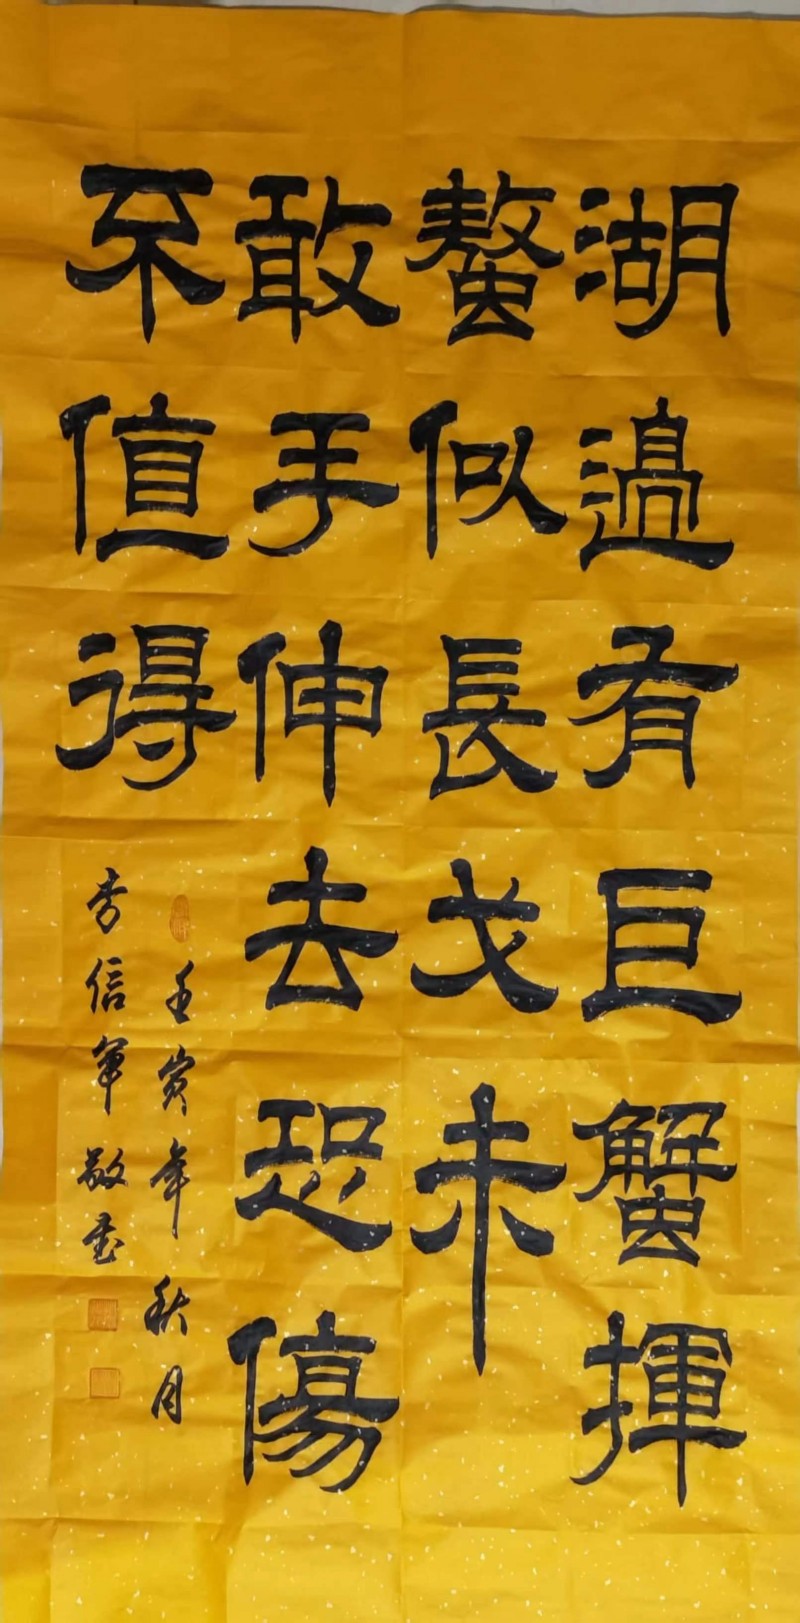 湖邊有巨蟹揮
螯似長戈未
敢手伸去恐傷
不值得
壬寅年秋月
秀信軍敬書